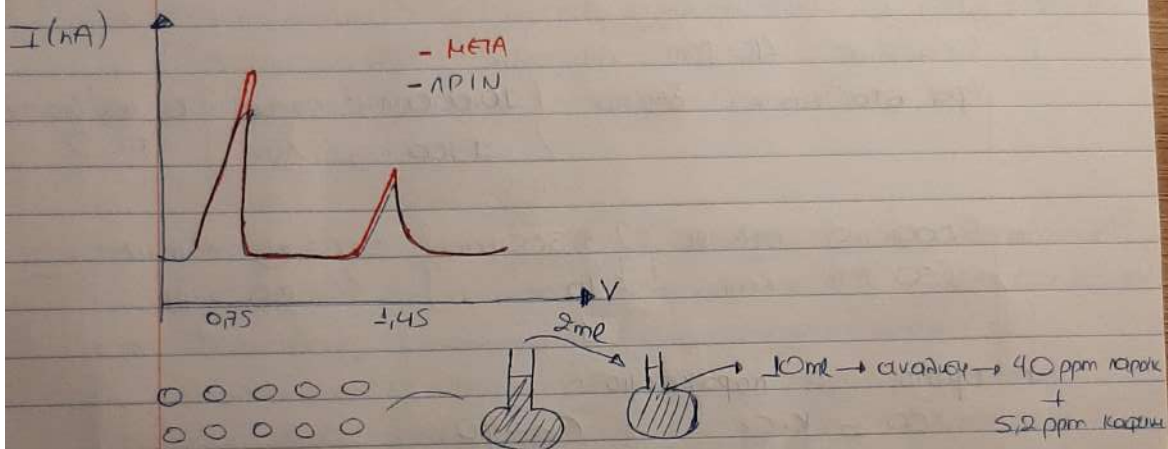 I(nA)
- ΜΕΤΑ
- ΠΡΙΝ
V
0,75
1,45
2ml
10ml → αναλυση → 40 ppm παρακ
+
5,2 ppm καφεΐνη